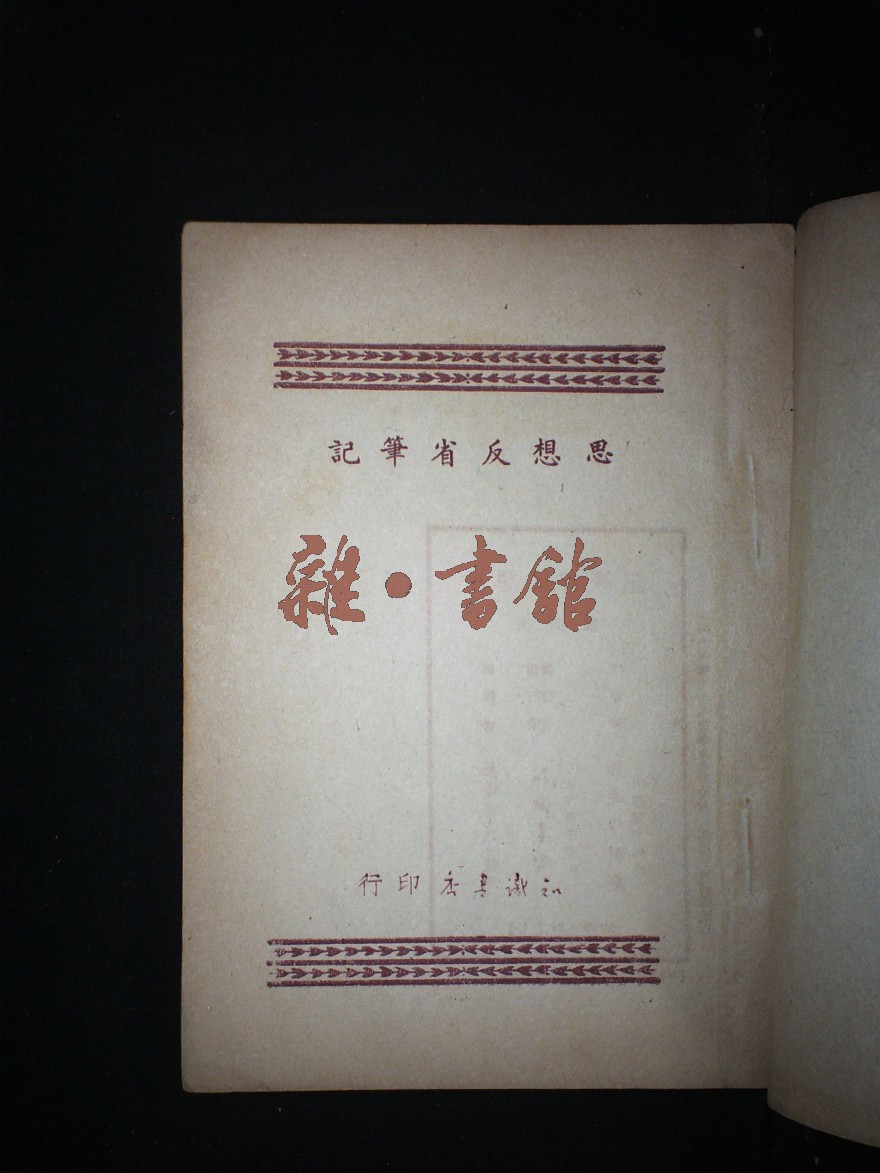 思想反省筆記
雜・書舘
知識書店印行